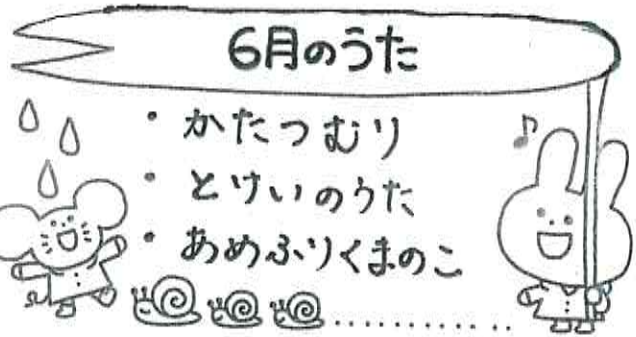 6月のうた
・かたつむり
・とけいのうた
・あめふりくまのこ